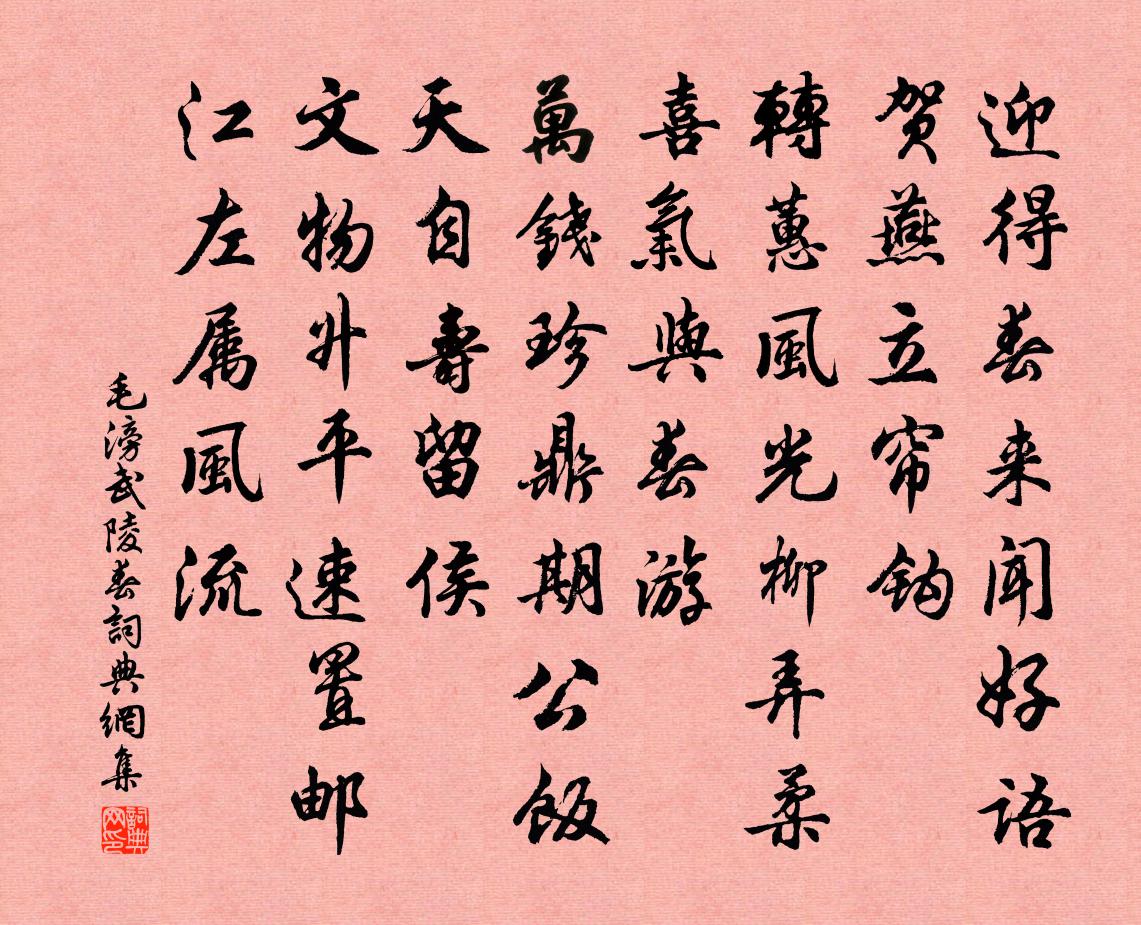 迎得春来闻好语
贺燕立帘钩
轉蕙風光柳弄柔
喜氣與春游
萬錢珍鼎期公飯
天自壽留侯
文物升平速置邮
江左属風流
毛滂武陵春詞典網集
詞典网印